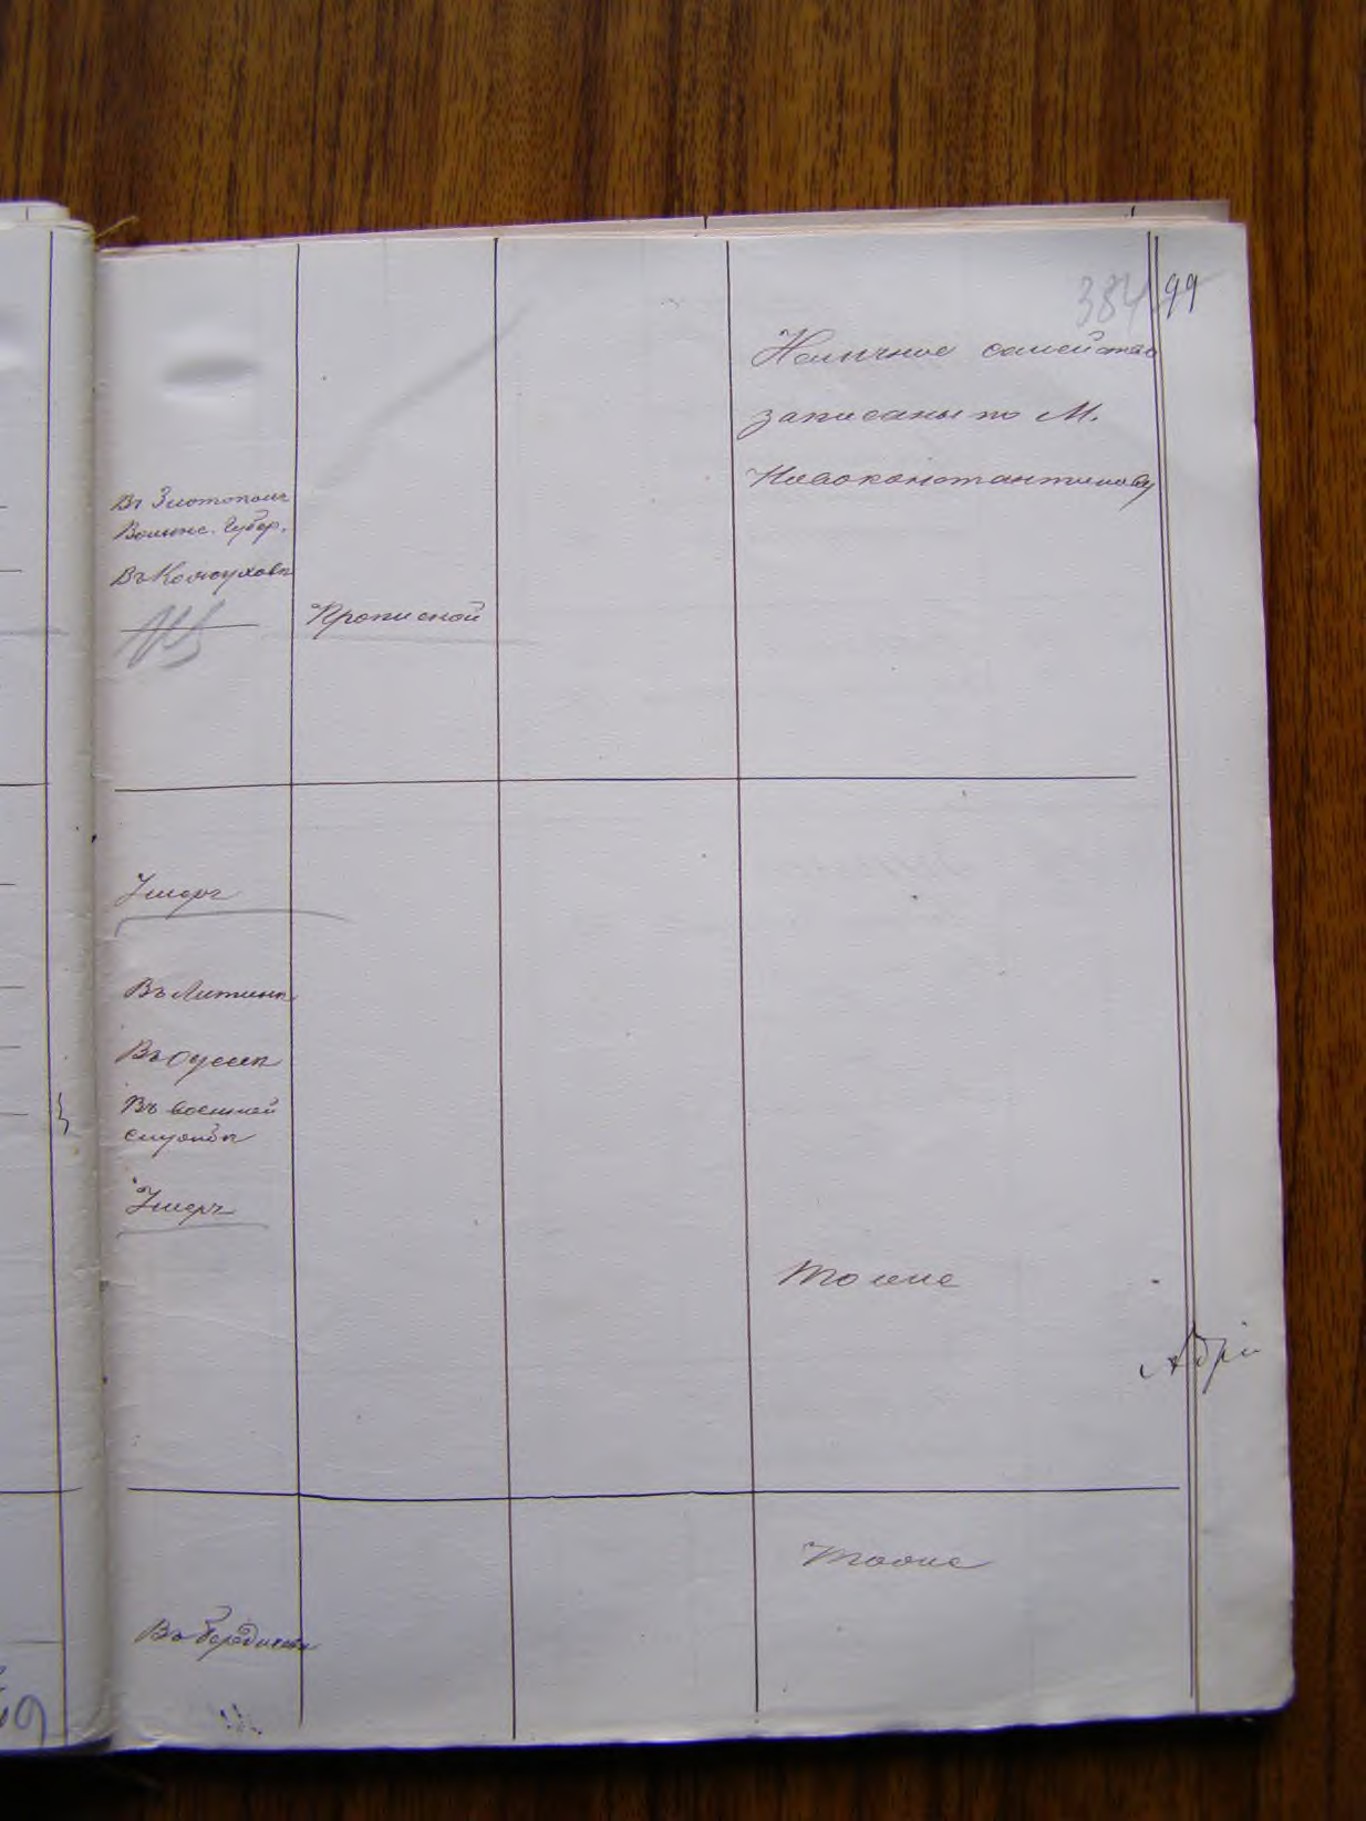 384 99
Наличное семейство
записаны по М.
Новоконстантинову
Въ Златополѣ
Волынс. Губер.
Въ Кожуховѣ
Прописной
Умеръ
Въ Литинѣ
Въ Одессѣ
Въ военной
службѣ
Умеръ
Тоже
Тоже
Въ Бердичевѣ